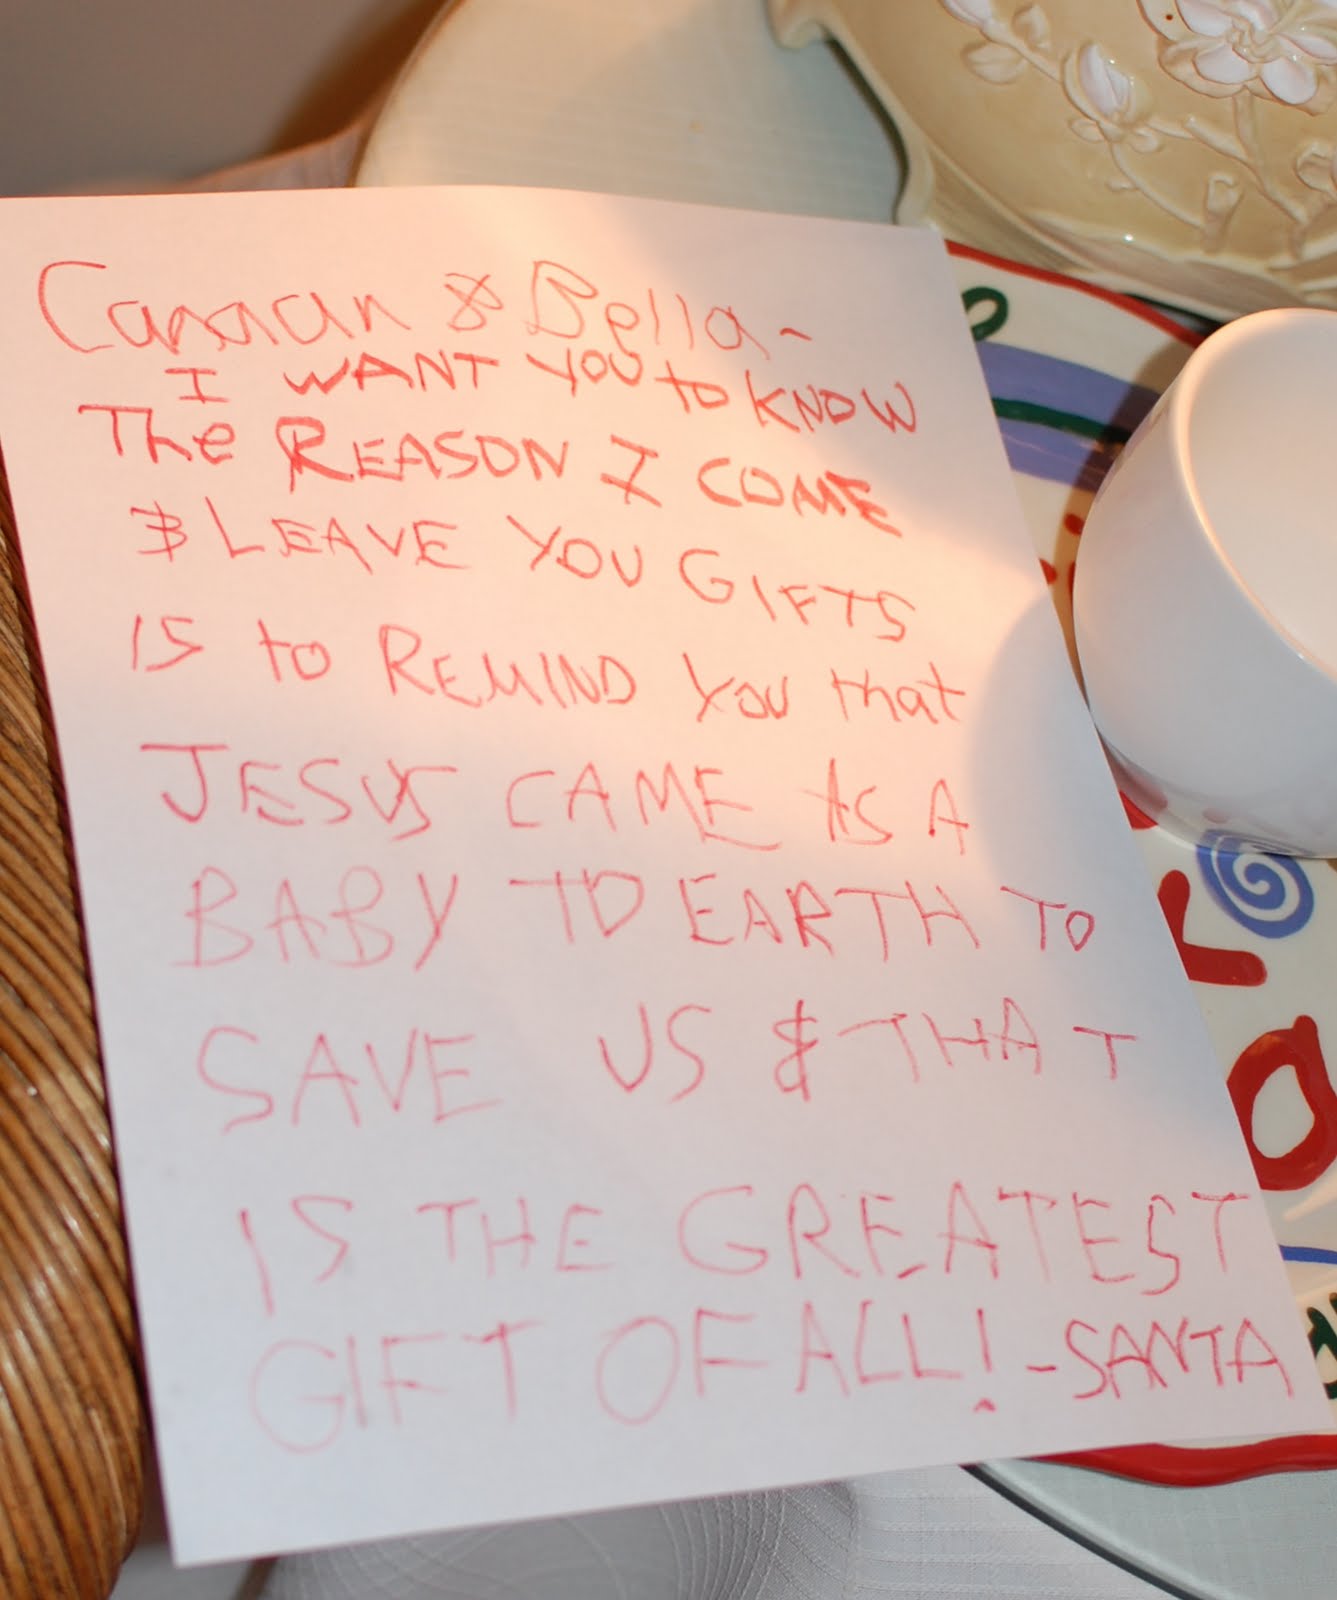 & Bella -
I WANT YOU to KNOW
The REASON I COME
& LEAVE YOU GIFTS
IS to REMIND YOU that
JESUS CAME AS A
BABY TO EARTH TO
SAVE US & THAT
IS THE GREATEST
GIFT OF ALL! - SANTA